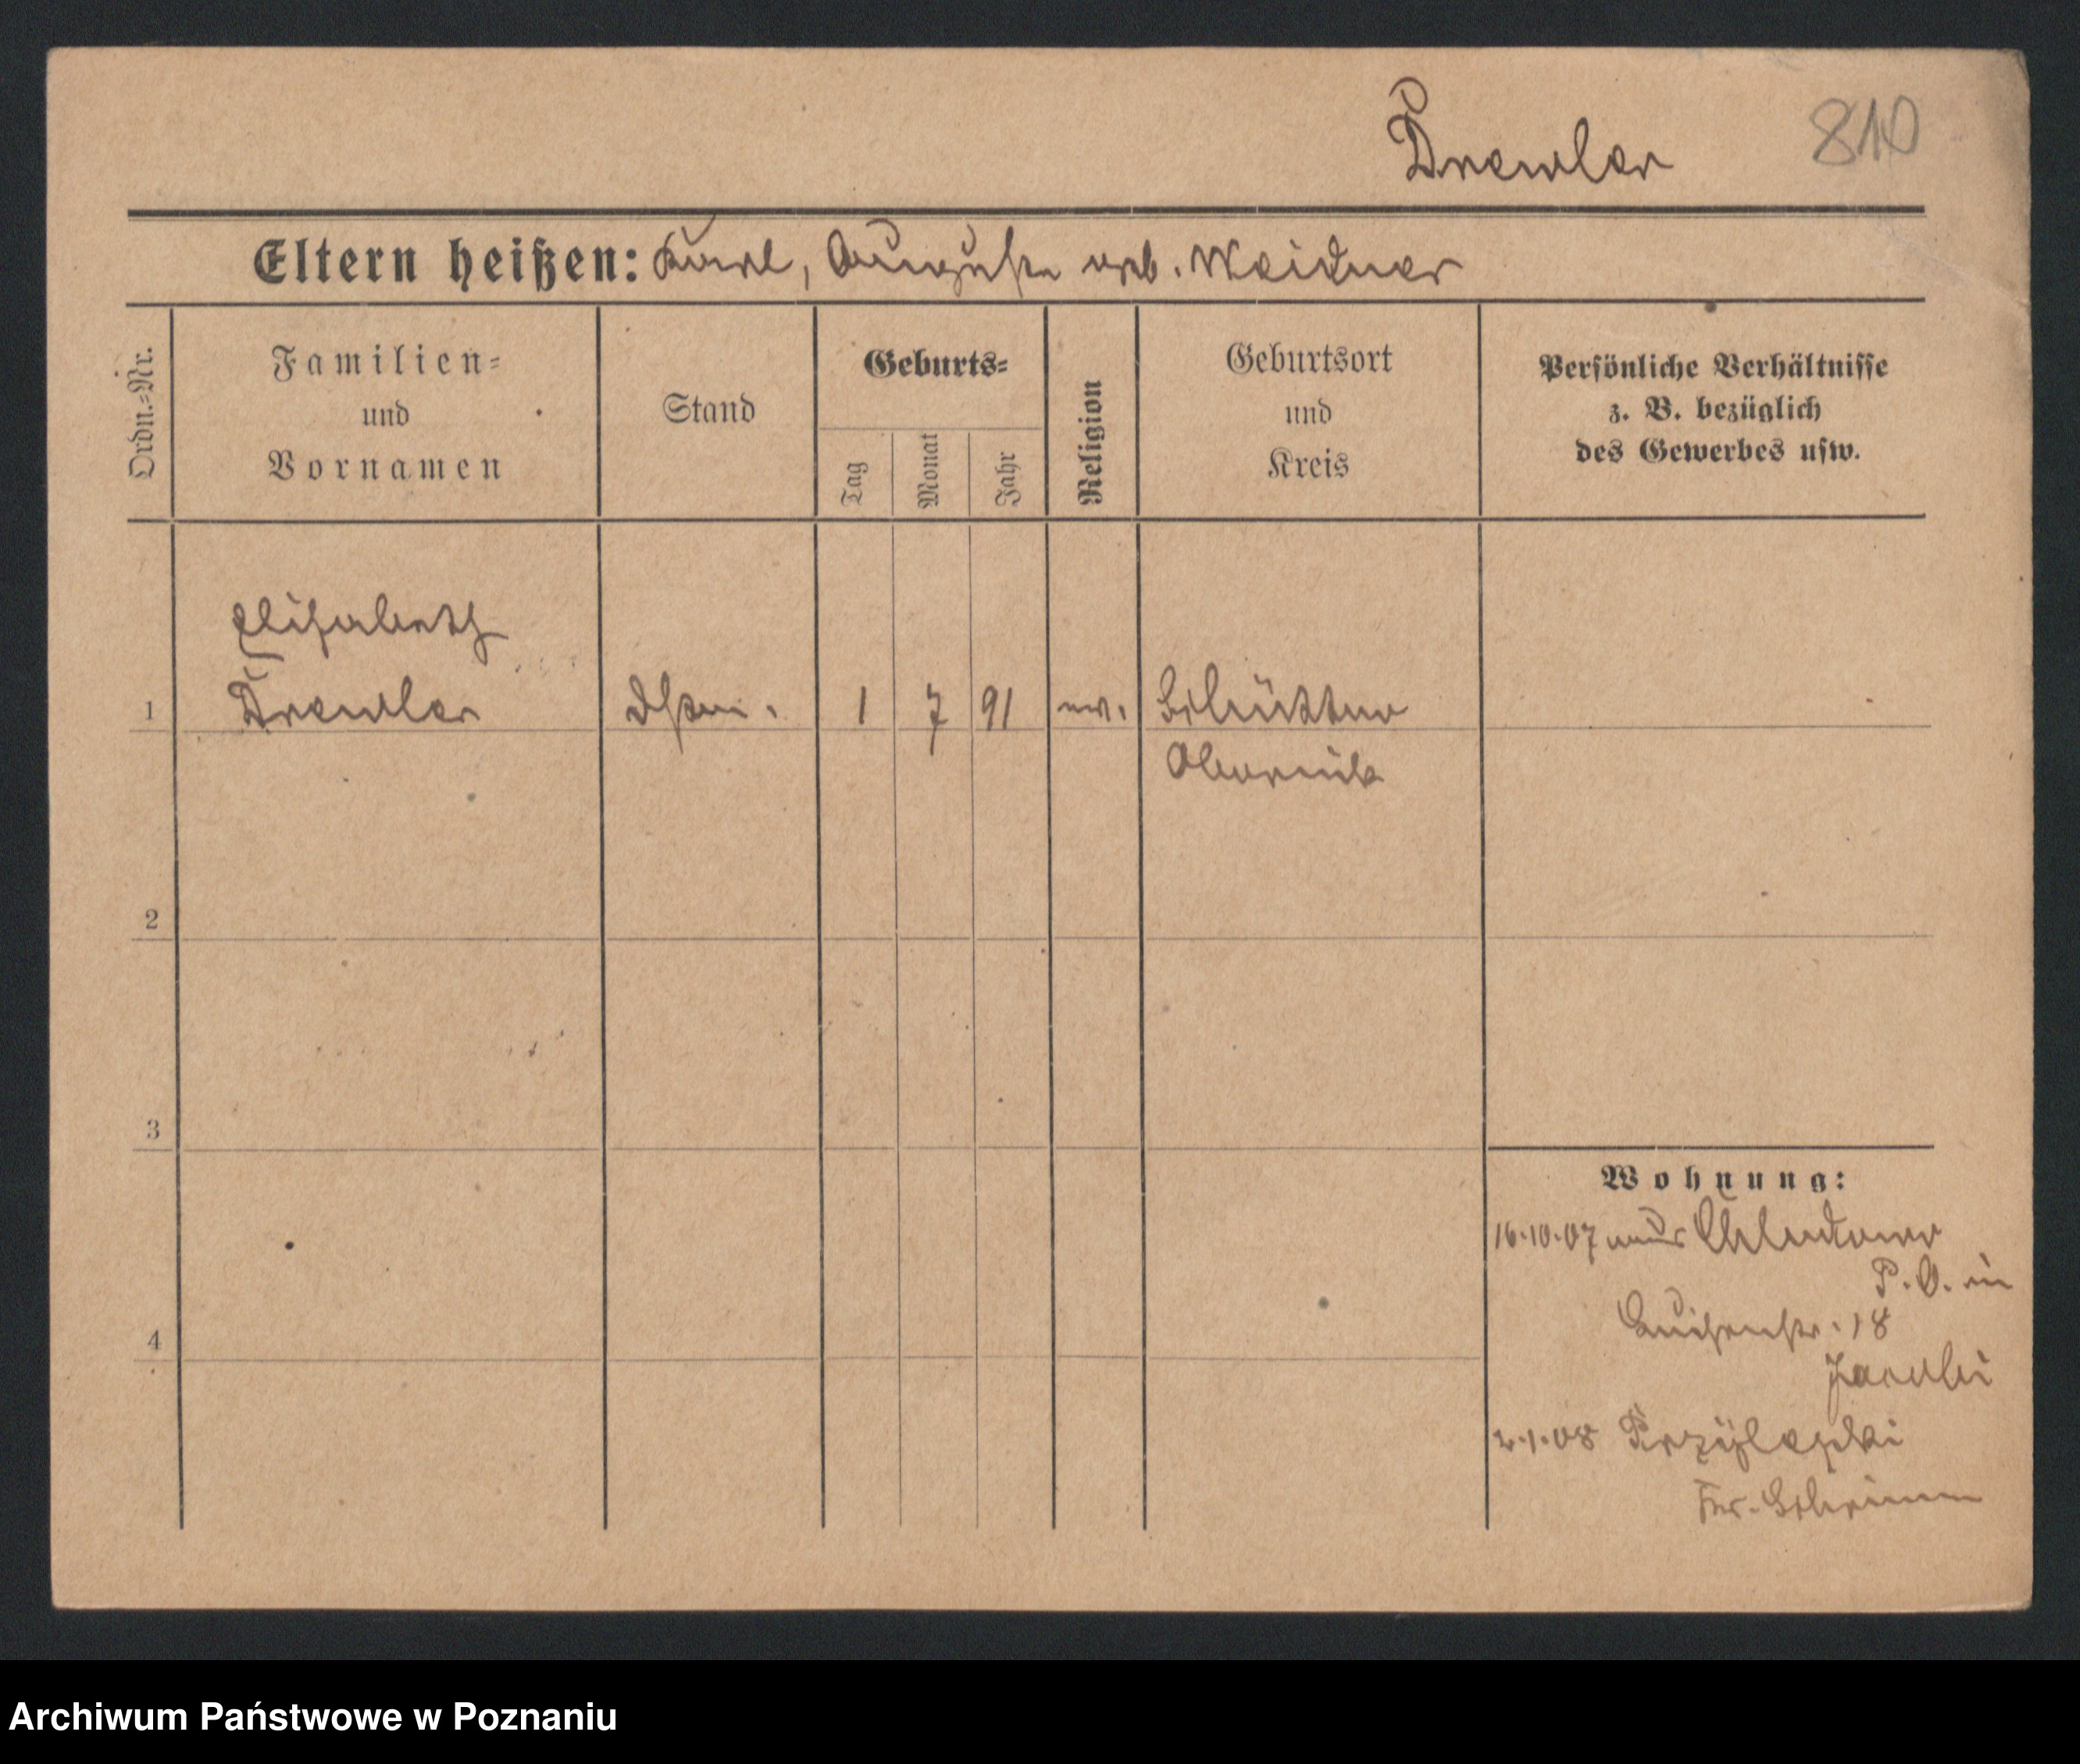 Drewler
810
Eltern heißen: Karl, Auguste geb. Weidner
Ordn.-Nr.
Familien-
und
Vornamen
Stand
Geburts-
Tag
Monat
Jahr
Religion
Geburtsort
und
Kreis
Persönliche Verhältnisse
z. B. bezüglich
des Gewerbes usw.
Elisabeth
1 Drewler 1 7 91 ev.
Obornik
2
3
4
Wohnung:
16.10.07 aus Chludowo
P. O. in
Luisenstr. 18
Jacobi
2.1.08
Kr. Schrimm
Archiwum Państwowe w Poznaniu